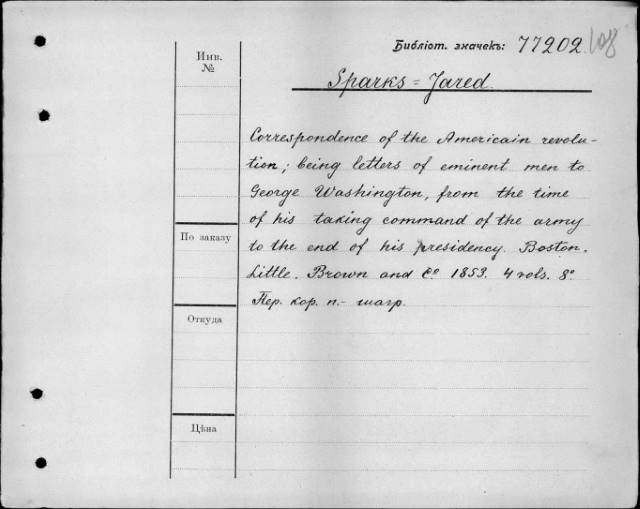 Библіот. значекъ: 77202 108
Инв. №
Sparks = Jared.
Correspondence of the Americain revolu-
tion; being letters of eminent men to
George Washington, from the time
of his taking command of the army
По заказу
to the end of his presidency. Boston.
Little. Brown and Cº 1853. 4 vols. 8º
Пер. кор. п.- шагр.
Откуда
Цѣна